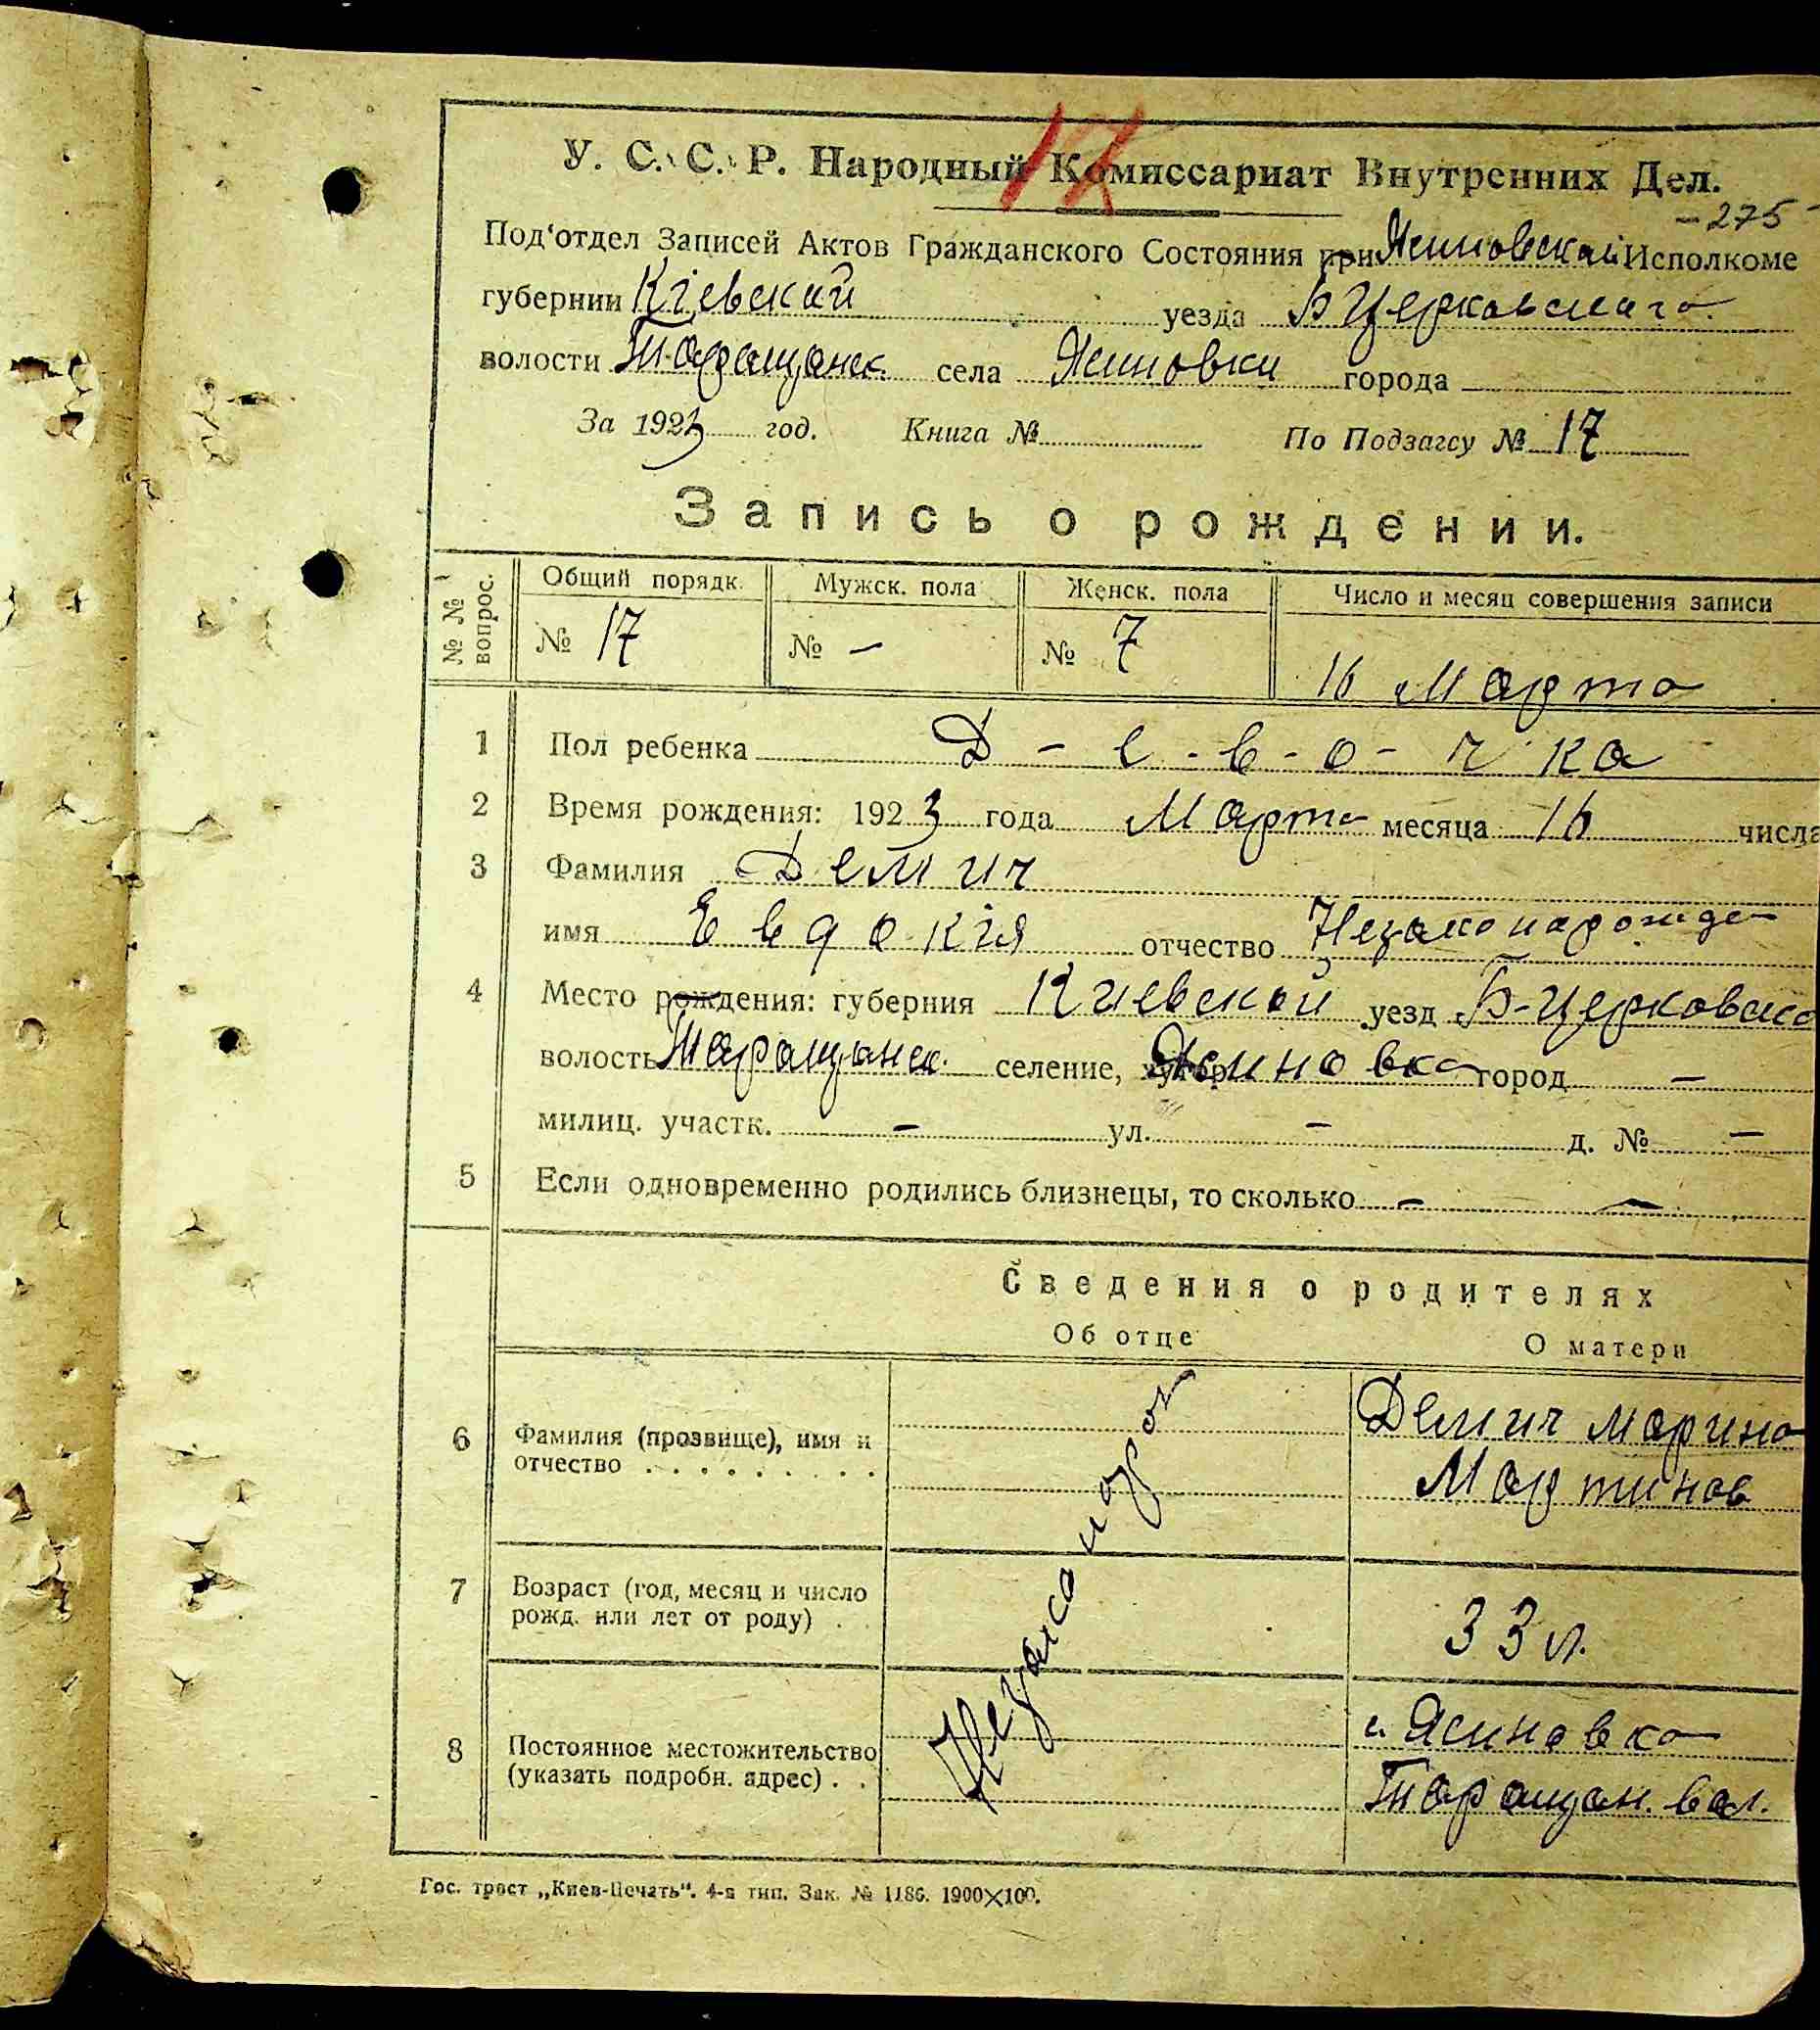 17
У. С. С. Р. Народный Комиссариат Внутренних Дел.
- 275 -
Под‘отдел Записей Актов Гражданского Состояния при Ясиновской Исполкоме
губернии Кіевскай уезда Б Церковскаго
волости Таращанск. села Ясиновки города
За 1923 год. Книга № По Подзагсу № 17
Запись о рождении.
№ № вопрос.
Общий порядк. Мужск. пола Женск. пола Число и месяц совершения записи
№ 17 № — № 7 16 Марта
1 Пол ребенка Д - е - в - о - ч ка
2 Время рождения: 1923 года Марта месяца 16 числа
3 Фамилия Демич
имя Евдокія отчество Незаконарожде-
4 Место рождения: губерния Киевской уезд Б-Церковско
волость Таращанск. селение, хутор Ясиновка город —
милиц. участк. — ул. — д. № —
5 Если одновременно родились близнецы, то сколько — —
Сведения о родителях
Об отце О матери
6 Фамилия (прозвище), имя и отчество . . . . . . . . .
Демич Марина
Мартинов
7 Возраст (год, месяц и число рожд. или лет от роду) . .
33 л.
8 Постоянное местожительство (указать подробн. адрес) . .
с. Ясиновка
Таращан. вол.
Гос. трест „Киев-Печать“. 4-я тип. Зак. № 1186. 1900×100.